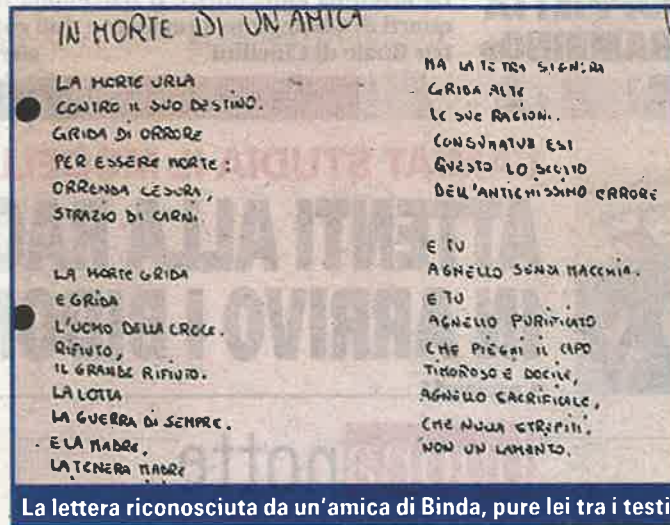 IN MORTE DI UN'AMICA
LA MORTE URLA
CONTRO IL SUO DESTINO.
GRIDA DI ORRORE
PER ESSERE MORTE:
ORRENDA CESURA,
STRAZIO DI CARNI.
LA MORTE GRIDA
E GRIDA
L'UOMO DELLA CROCE.
RIFIUTO,
IL GRANDE RIFIUTO.
LA LOTTA
LA GUERRA DI SEMPRE.
E LA MADRE,
LA TENERA MADRE
MA LA TETRA SIGNORA
GRIDA ALTE
LE SUE RAGIONI.
CONSUMATUM EST
QUESTO LO SCELTO
DELL'ANTICHISSIMO ERRORE
E TU
AGNELLO SENZA MACCHIA.
E TU
AGNELLO PURIFICATO
CHE PIEGHI IL CAPO
TIMOROSO E DOCILE,
AGNELLO SACRIFICALE,
CHE NULLA STREPITI.
NON UN LAMENTO.
La lettera riconosciuta da un'amica di Binda, pure lei tra i testi